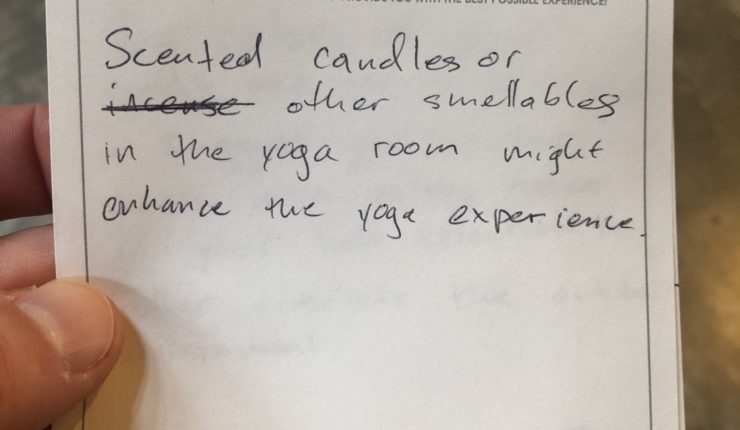 PROVIDE YOU WITH THE BEST POSSIBLE EXPERIENCE!
Scented candles or
incense other smellables
in the yoga room might
enhance the yoga experience.